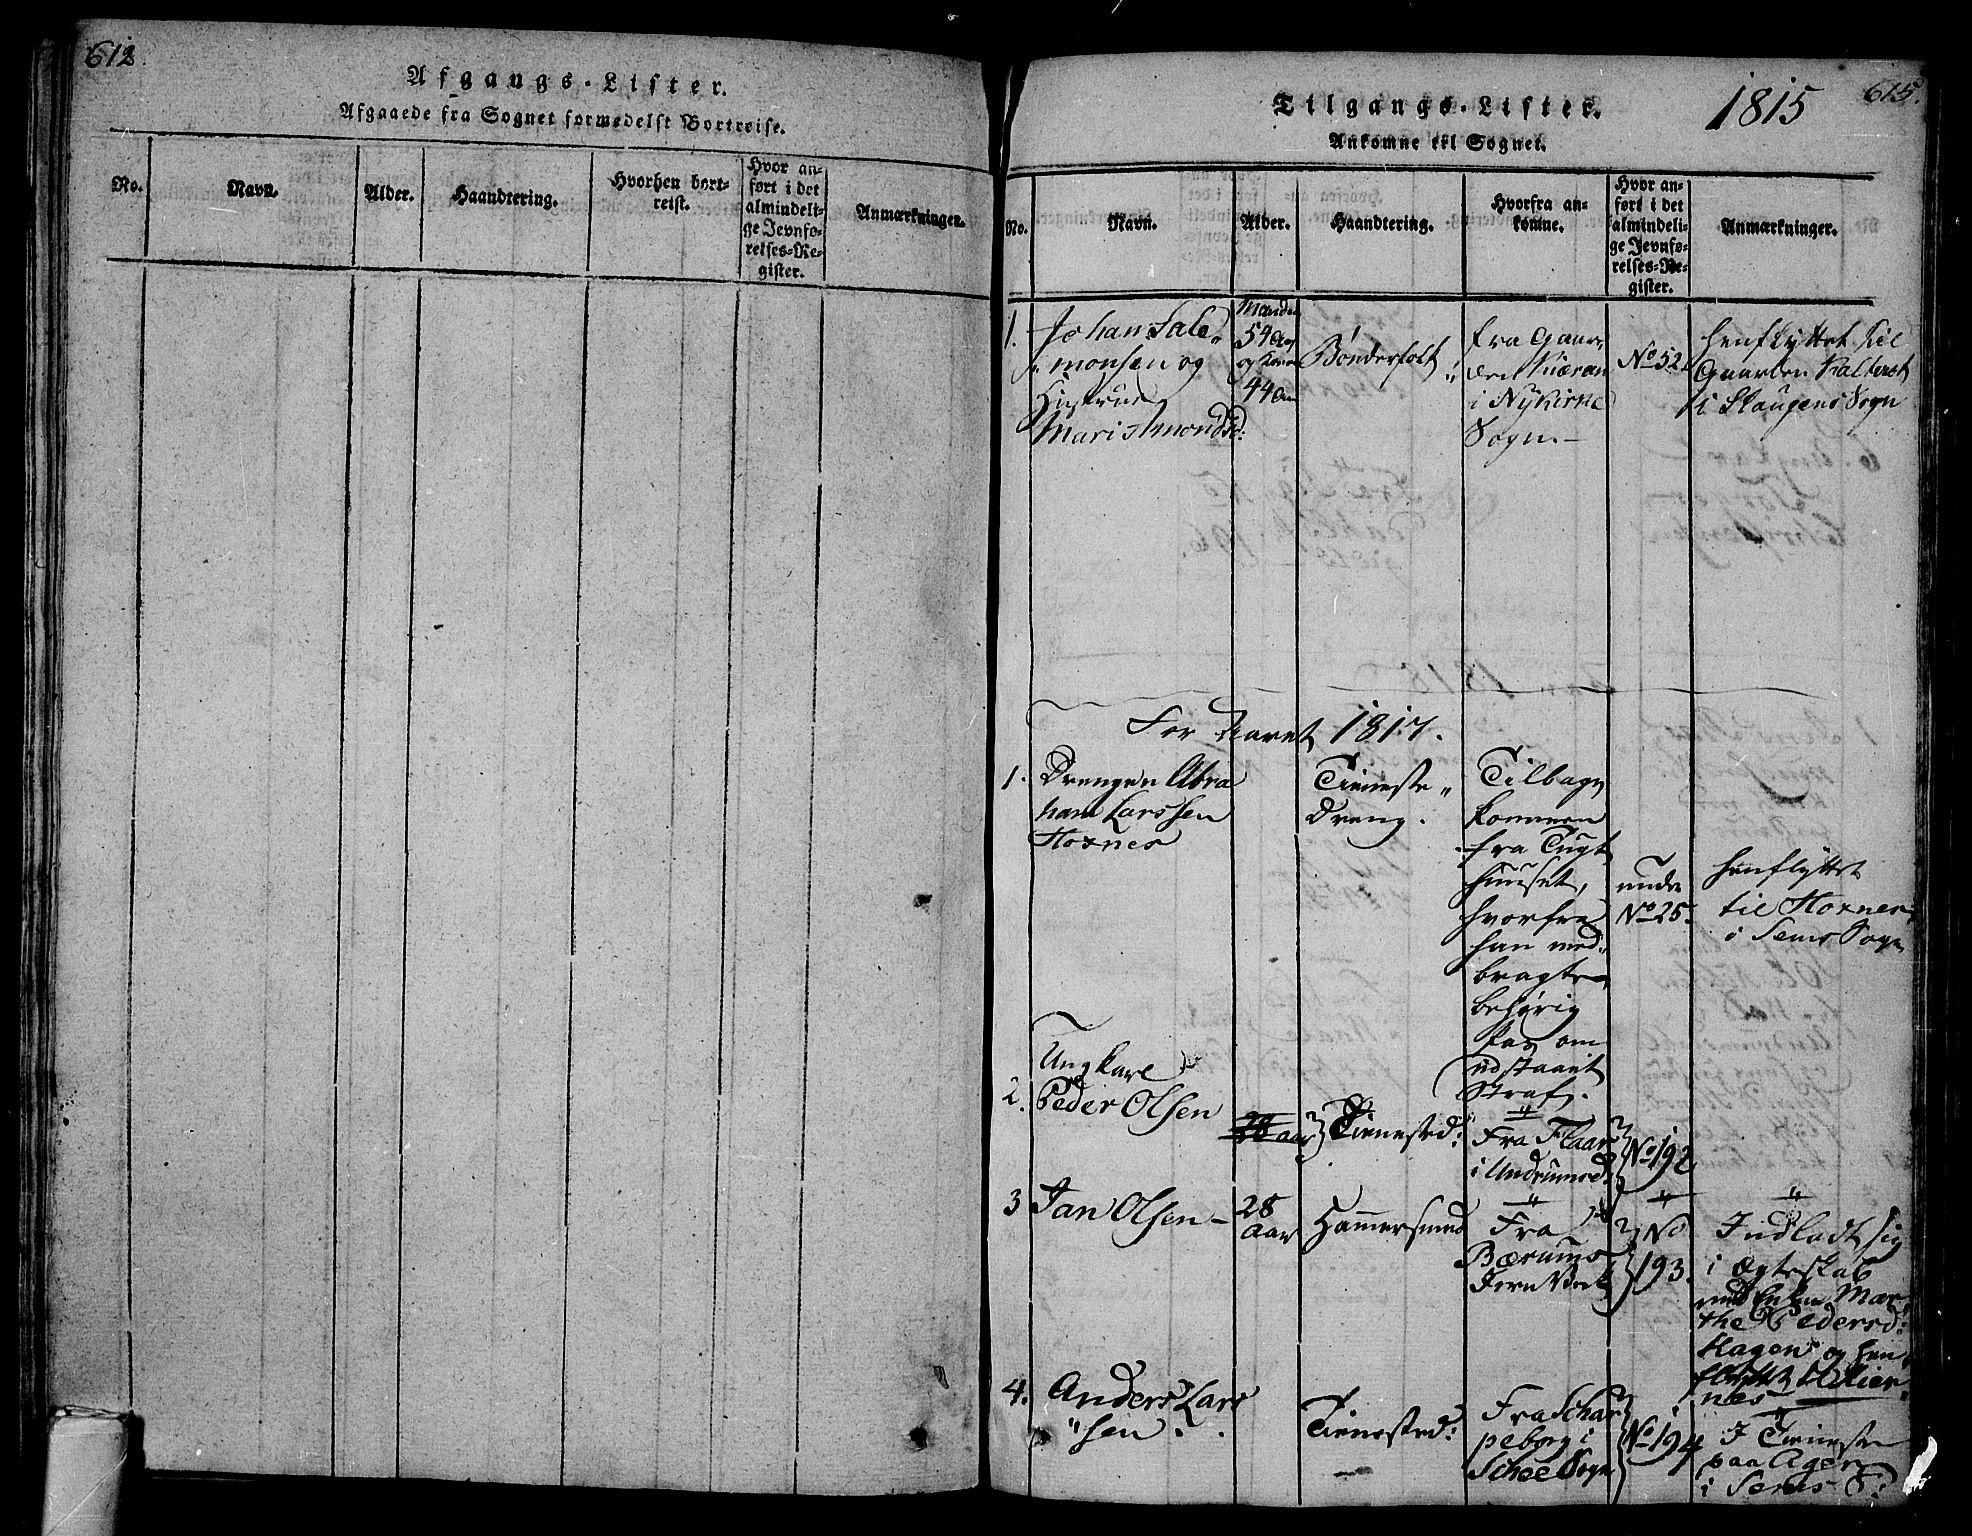 612.
Afgangs-Lister.
Afgaaede fra Sognet formedelst Bortreise.
No.
Navn.
Alder.
Haandtering.
Hvorhen bort-
reist.
Hvor an-
ført i det
almindeli-
ge Jevnfø-
relses-Re-
gister.
Anmærkninger.
615.
Tilgangs-Lister.
1815
Ankomne til Sognet.
No.
Navn.
Alder.
Haandtering.
Hvorfra an-
komne.
Hvor an-
ført i det
almindeli-
ge Jevnfø-
relses-Re-
gister.
Anmærkninger.
1.
Johan Sale„
„monsen og
Hustrue
Mari Amondsd:
Manden
54 Aar
og Konen
44 Aar
Bønderfolk
fra Gaar„
den
i Nykirke
Sogn.
No 52.
henflyttet til
Gaarden
i Slaugens Sogn
For Aaret 1817.
1.
Drengen Abra
ham Larssen
Tieneste„
Dreng.
Tilbage
kommen
fra Tugt
huuset,
hvorfra
han med„
bragte
behørig
Pas om
udstaaet
Straf.
under
No 25.
henflyttet
til
i Sems Sogn
2.
Ungkarl
Peder Olsen
28 Aar
Tienested:
Fra
i
No 192
3
Jan Olsen
28
Aar
Hammersmed
Fra
Bærums
Jern Værk
No
193.
Indladt sig
i Ægteskab
med Enken Mar„
the Pedersd:
Hagen og hen„
flyttet til
4.
Anders Lars
„sen.
Tienested:
Fra Schar
peborg i
Schee Sogn
No 194
I Tieneste
paa Agers
i Sems S: